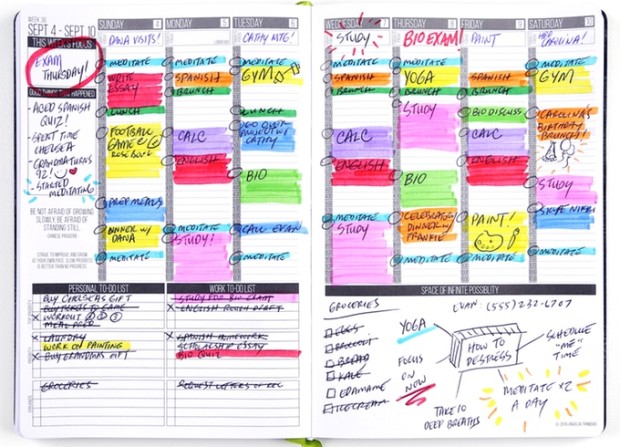 WEEK 36
SEPT 4 - SEPT 10
THIS WEEK'S FOCUS
EXAM
THURSDAY!
GOOD THINGS THAT HAPPENED
- ACED SPANISH
QUIZ!
- SPENT TIME
CHELSEA
- GRANDMA TURNS
92!
- STARTED
MEDITATING
BE NOT AFRAID OF GROWING
SLOWLY, BE AFRAID OF
STANDING STILL.
- CHINESE PROVERB
SUNDAY 4
DANA VISITS!
MEDITATE
WRITE
ESSAY
LUNCH
FOOTBALL
GAME @
ROSE BOWL
PREP MEALS
DINNER W/
DANA
MEDITATE
MONDAY 5
MEDITATE
SPANISH
BRUNCH
CALC
ENGLISH
MEDITATE
STUDY!
TUESDAY 6
CATHY MTG!
MEDITATE
GYM
LUNCH
PROJECT W/
CATHY
BIO
CALL EVAN
MEDITATE
WEDNESDAY 7
STUDY
MEDITATE
SPANISH
BRUNCH
CALC
ENGLISH
MEDITATE
STUDY
THURSDAY 8
BIO EXAM!
MEDITATE
YOGA
BRUNCH
STUDY
BIO
CELEBRATORY
DINNER W/
FRANKIE
MEDITATE
FRIDAY 9
PAINT
MEDITATE
SPANISH
BRUNCH
BIO DISCUSS
CALC
ENGLISH
PAINT!
MEDITATE
SATURDAY 10
CAROLINA!
MEDITATE
GYM
CAROLINA'S
BIRTHDAY
BRUNCH!
STUDY
MEDITATE
PERSONAL TO-DO LIST
BUY CHELSEA'S GIFT
BUY TICKETS TO GAME
WORKOUT
MEAL PREP
LAUNDRY
WORK ON PAINTING
BUY GRANDMA'S GIFT
GROCERIES
WORK TO-DO LIST
STUDY FOR BIO EXAM
ENGLISH ROUGH DRAFT
SPANISH HOMEWORK
SCHOLARSHIP ESSAY
BIO QUIZ
REQUEST LETTERS OF REC
SPACE OF INFINITE POSSIBILITY
GROCERIES
EGGS
BROCCOLI
BREAD
KALE
EDAMAME
ICE CREAM
YOGA
FOCUS
ON
NOW
EVAN: (555) 232-6707
HOW TO
DESTRESS
SCHEDULE
"ME"
TIME
MEDITATE X2
A DAY
TAKE 10
DEEP BREATHS